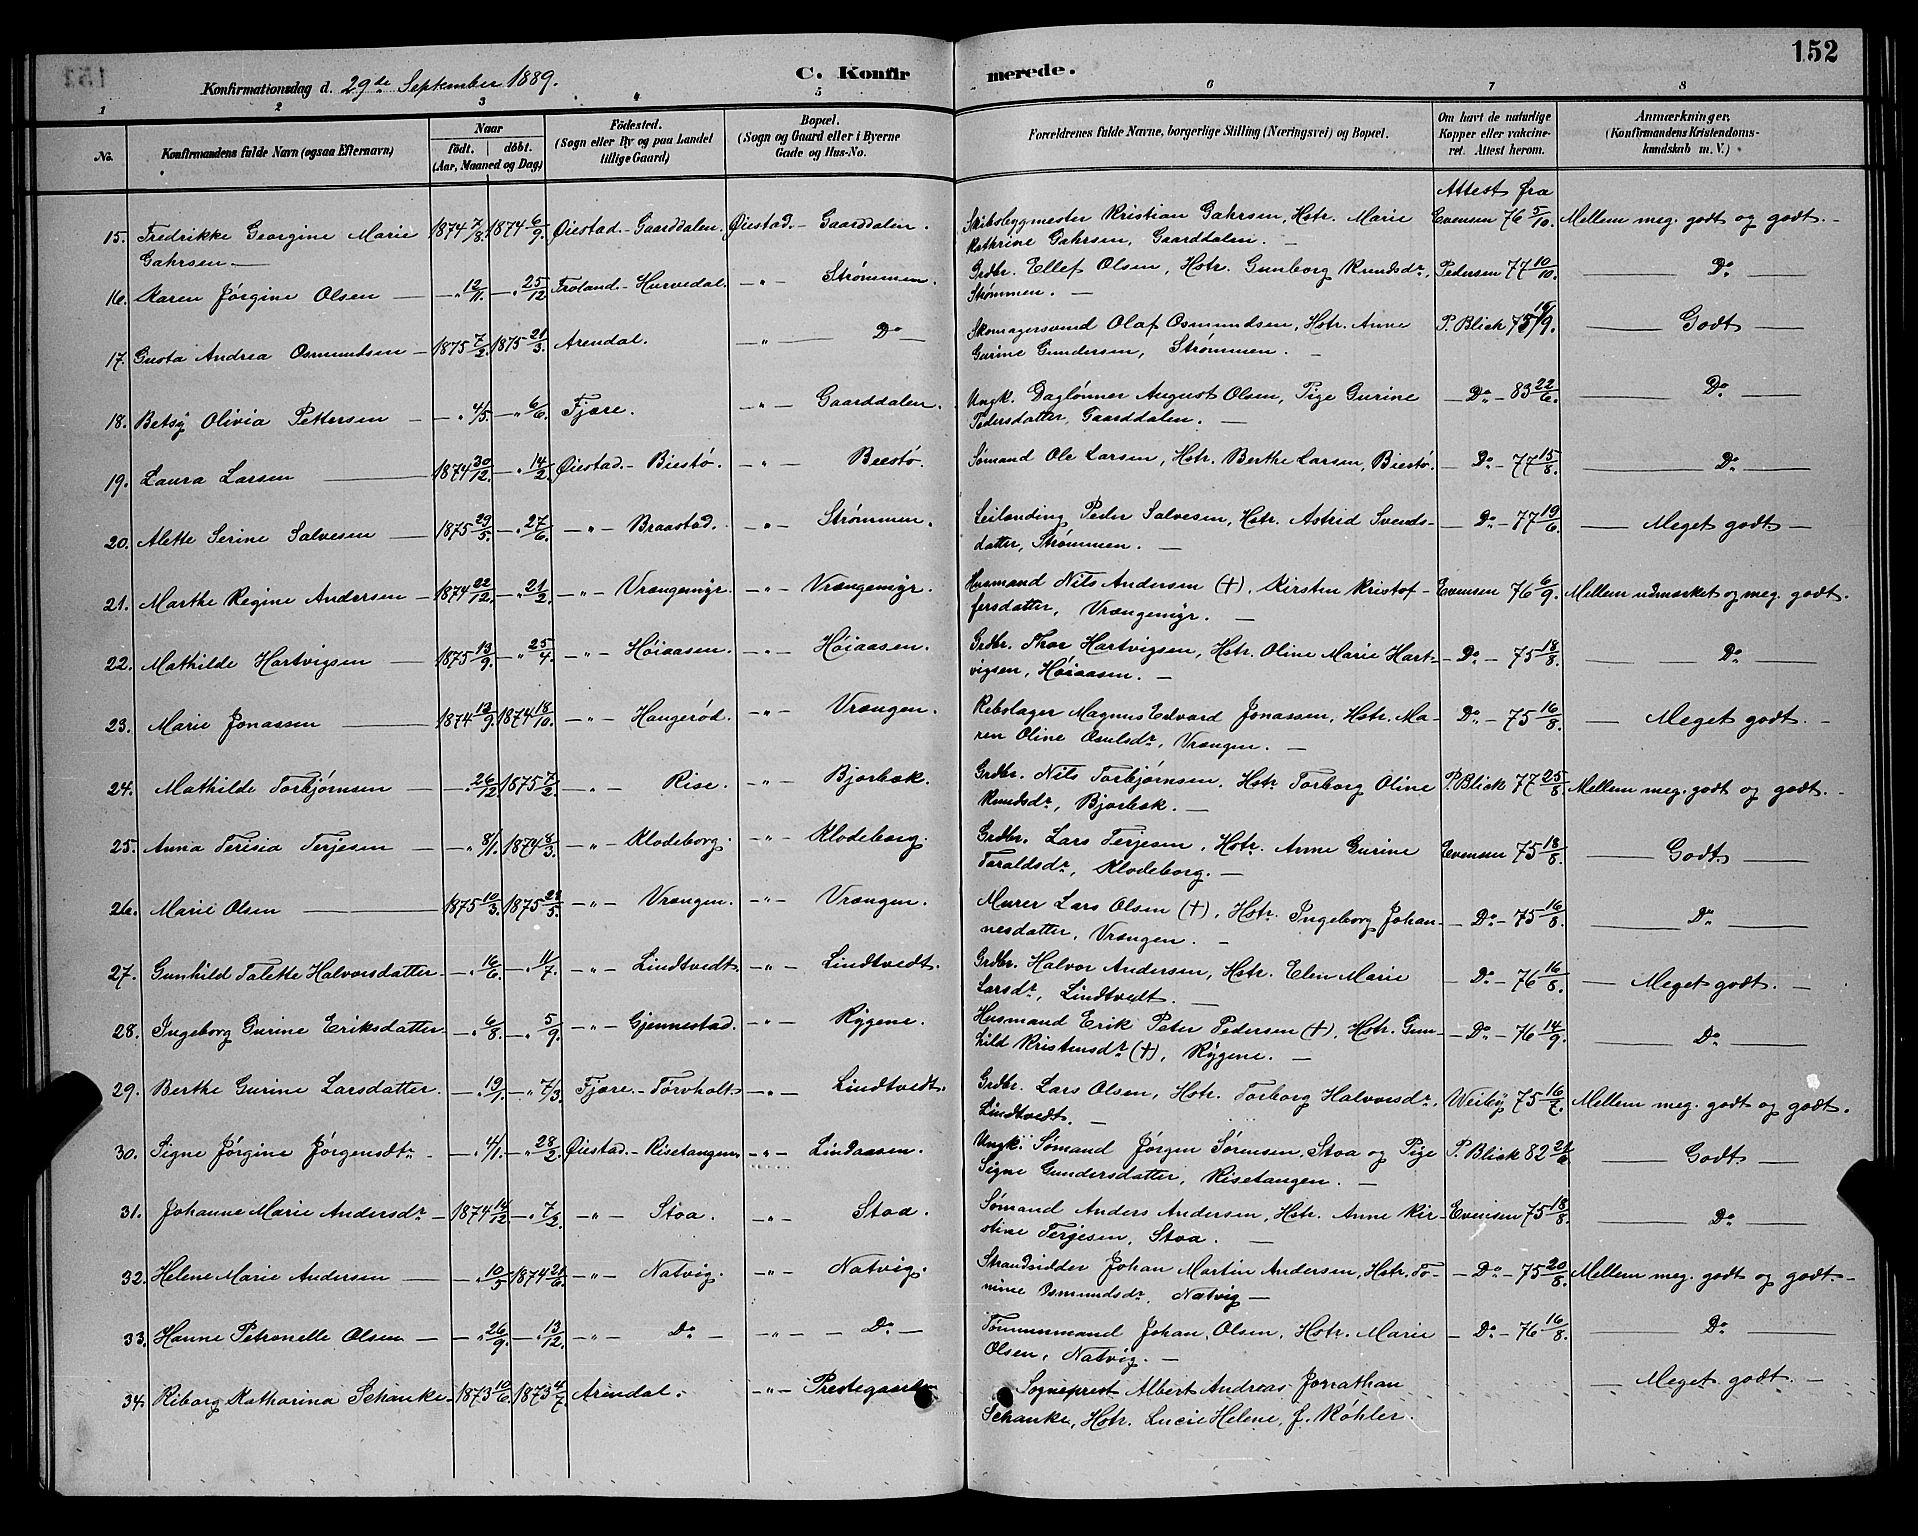 152
Konfirmationsdag d. 29de September 1889. C. Konfirmerede.
1 2 3 4 5 6 7 8
No. | Konfirmandens fulde Navn (ogsaa Efternavn) | Naar født. døbt. (Aar, Maaned og Dag) | Födested. (Sogn eller By og paa Landet tillige Gaard) | Bopæl. (Sogn og Gaard eller i Byerne Gade og Hus-No. | Forældrenes fulde Navne, borgerlige Stilling (Næringsvei) og Bopæl. | Om havt de naturlige Kopper eller vakcineret. Attest herom. | Anmærkninger. (Konfirmandens Kristendomskundskab m. V.)
Attest fra
15. Fredrikke Georgine Marie Gahrsen — 1874 7/8. 1874 6/9. Øiestad - Gaarddalen. Øiestad - Gaarddalen. Skibsbygmester Kristian Gahrsen, Hstr. Marie Kathrine Gahrsen, Gaarddalen. — Evensen 76 5/10. Mellem meg. godt og godt. -
16. Karen Jørgine Olsen — „ 12/11. — „ 25/12 Froland - Hurvedal. — „ — Strømmen. Grdbr. Ellef Olsen, Hstr. Gunborg Knudsdr, Strømmen. — Pedersen 77 10/10. — Do —
17. Gusta Andrea Osmundsen — 1875 7/2. 1875 21/3. Arendal. — „ — Do — Skomagersvend Olaf Osmundsen, Hstr. Anne Gurine Gundersen, Strømmen. — P. Blich 75 /9. — Godt —
18. Betsy Olivia Pettersen — „ 4/5 — „ 6/6. Fjære. — „ — Gaarddalen. Ungk. Daglønner August Olsen, Pige Gurine Pedersdatter, Gaarddalen. — Do - 83 22/6. — Do —
19. Laura Larsen — 1874 30/12. — „ 14/2. Øiestad - Biestø. — „ — Biestø. Sømand Ole Larsen, Hstr. Berthe Larsen, Biestø. — Do - 77 15/8. — Do —
20. Alette Serine Salvesen — 1875 29/5. — „ 27/6. — „ — Braastad. — „ — Strømmen. Leilending Peder Salvesen, Hstr. Astrid Svendsdatter, Strømmen. — Do - 77 19/6. — Meget godt —
21. Marthe Regine Andersen — 1874 22/12. — „ 21/2. — „ — Vrængemyr. — „ — Vrængemyr. Husmand Nils Andersen (†), Kirsten Kristoffersdatter, Vrængemyr. — Evensen 76 6/9. Mellem udmærket og meg. godt.
22. Mathilde Hartvigsen — 1875 13/9. — „ 25/4. — „ — Høiaasen. — „ — Høiaasen. Grdbr. Thor Hartvigsen, Hstr. Oline Marie Hartvigsen, Høiaasen. — Do - 75 18/8. — Do —
23. Marie Jonassen — 1874 13/9. 1874 18/10. — „ — Haugerød. — „ — Vrængen. Rebslager Magnus Edvard Jonassen, Hstr. Maren Oline Osulsdr, Vrængen. — Do - 75 16/8. — Meget godt. —
24. Mathilde Torbjørnsen — „ 26/12. 1875 7/2. — „ — Rise. — „ — Bjorbæk. Grdbr. Nils Torbjørnsen, Hstr. Torborg Oline Knudsdr, Bjorbæk. — P. Blich 77 25/8. Mellem meg. godt og godt. -
25. Anna Terisia Terjesen — „ 8/1. 1874 8/3. — „ — Klodeborg. — „ — Klodeborg. Grdbr. Lars Terjesen, Hstr. Anne Gurine Taraldsdr, Klodeborg. — Evensen 75 18/8. — Godt —
26. Marie Olsen — 1875 10/3. 1875 23/5. — „ — Vrængen. — „ — Vrængen. Murer Lars Olsen (†), Hstr. Ingeborg Johannesdatter, Vrængen. — Do - 75 16/8. — Do —
27. Gunhild Talette Halvorsdatter — „ 16/6. — „ 11/7. — „ — Lindtvedt — „ — Lindtvedt. Grdbr. Halvor Andersen, Hstr. Elen Marie Larsdr, Lindtvedt. — Do - 76 16/8. — Meget godt. —
28. Ingeborg Gurine Eriksdatter — „ 6/8. — „ 5/9. — „ — Gjennestad. — „ — Rygene. Husmand Erik Peter Pedersen (†), Hstr. Gunhild Kristensdr (†), Rygene. — Do - 76 14/9. — Do —
29. Berthe Gurine Larsdatter. — „ 19/1. — „ 7/3. Fjære - Torvholt — „ — Lindtvedt. Grdbr. Lars Olsen, Hstr. Torborg Halvorsdr, Lindtvedt. — Weiby 75 16/7. Mellem meg. godt og godt.
30. Signe Jørgine Jørgensdtr — „ 4/1. — „ 28/2. Øiestad - Risetangen. — „ — Lindaasen. Ungk. Sømand Jørgen Sørensen, Stoa og Pige Signe Gundersdatter, Risetangen. — P. Blich 82 — Godt —
31. Johanne Marie Andersdr — 1874 14/12 — „ 7/2. — „ — Stoa. — „ — Stoa. Sømand Anders Andersen, Hstr. Anne Kirstine Terjesen, Stoa. — Evensen 75 18/8. — Do —
32. Helene Marie Andersen — „ 10/5 1874 21/6. — „ — Natvig. — „ — Natvig. Strandsidder Johan Martin Andersen, Hstr. Tonine Osmundsdr, Natvig — Do - 75 20/8. Mellem meg. godt og godt. -
33. Hanne Petronelle Olsen — „ 26/9. — „ 13/12. — „ — Do — „ — Do — Tømmermand Johan Olsen, Hstr. Marie Olsen, Natvig. — Do - 76 16/8. — Do —
34. Riborg Katharina Schanke — 1873 10/6. 1873 4/7 Arendal. — „ — Prestegaarden Sogneprest Albert Andreas Jonathan Schanke, Hstr. Lucie Helene, f. Køhler. — Meget godt. —